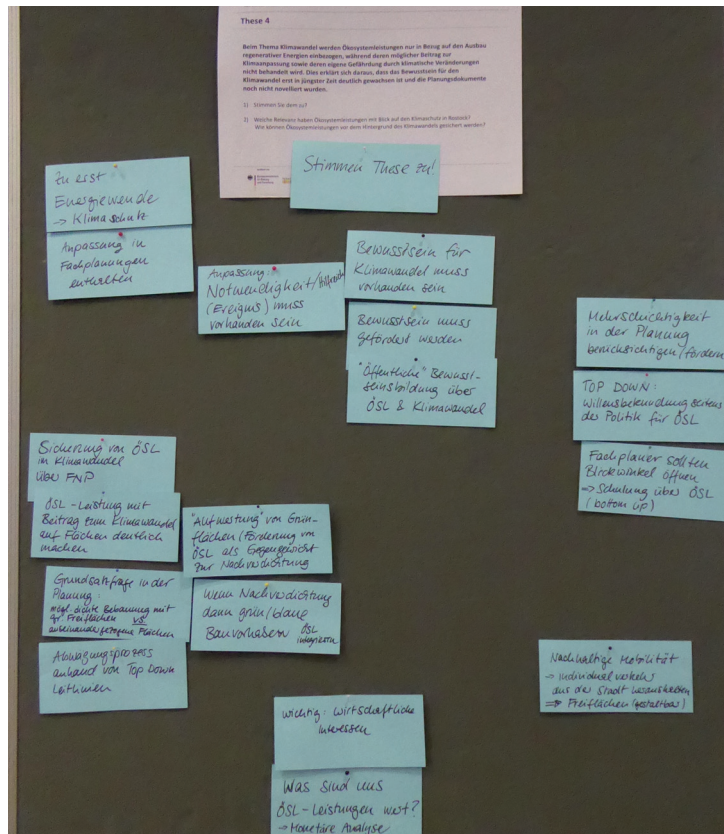 These 4
Beim Thema Klimawandel werden Ökosystemleistungen nur in Bezug auf den Ausbau
regenerativer Energien einbezogen, während deren möglicher Beitrag zur
Klimaanpassung sowie deren eigene Gefährdung durch klimatische Veränderungen
nicht behandelt wird. Dies erklärt sich daraus, dass das Bewusstsein für den
Klimawandel erst in jüngster Zeit deutlich gewachsen ist und die Planungsdokumente
noch nicht novelliert wurden.
1) Stimmen Sie dem zu?
2) Welche Relevanz haben Ökosystemleistungen mit Blick auf den Klimaschutz in Rostock?
Wie können Ökosystemleistungen vor dem Hintergrund des Klimawandels gesichert werden?
Stimmen These zu!
Zu erst
Energiewende
→ Klimaschutz
Anpassung in
Fachplanungen
enthalten
Anpassung:
Notwendigkeit/
(Ereignis) muss
vorhanden sein
Bewusstsein für
Klimawandel muss
vorhanden sein
Bewusstsein muss
gefördert werden
"Öffentliche" Bewusst-
seinsbildung über
ÖSL & Klimawandel
Mehrschichtigkeit
in der Planung
berücksichtigen/fördern
TOP DOWN:
Willensbekundung seitens
der Politik für ÖSL
Fachplaner sollten
Blickwinkel öffnen
⇒ Schulung über ÖSL
(bottom up)
Sicherung von ÖSL
im Klimawandel
über FNP
ÖSL-Leistung mit
Beitrag zum Klimawandel
auf Flächen deutlich
machen
Grundsatzfrage in der
Planung:
mögl. dichte Bebauung mit
gr. Freiflächen vs
auseinandergezogene Flächen
Abwägungsprozess
anhand von Top Down
Leitlinien
"Aufwertung von Grün-
flächen/Förderung von
ÖSL als Gegengewicht
zur Nachverdichtung
Wenn Nachverdichtung
dann grün/blaue
Bauvorhaben ÖSL
integrieren
Nachhaltige Mobilität
→ Individualverkehr
aus der Stadt heraushalten
⇒ Freiflächen (gestaltbar)
wichtig: Wirtschaftliche
Interessen
Was sind uns
ÖSL-Leistungen wert?
→ Monetäre Analyse